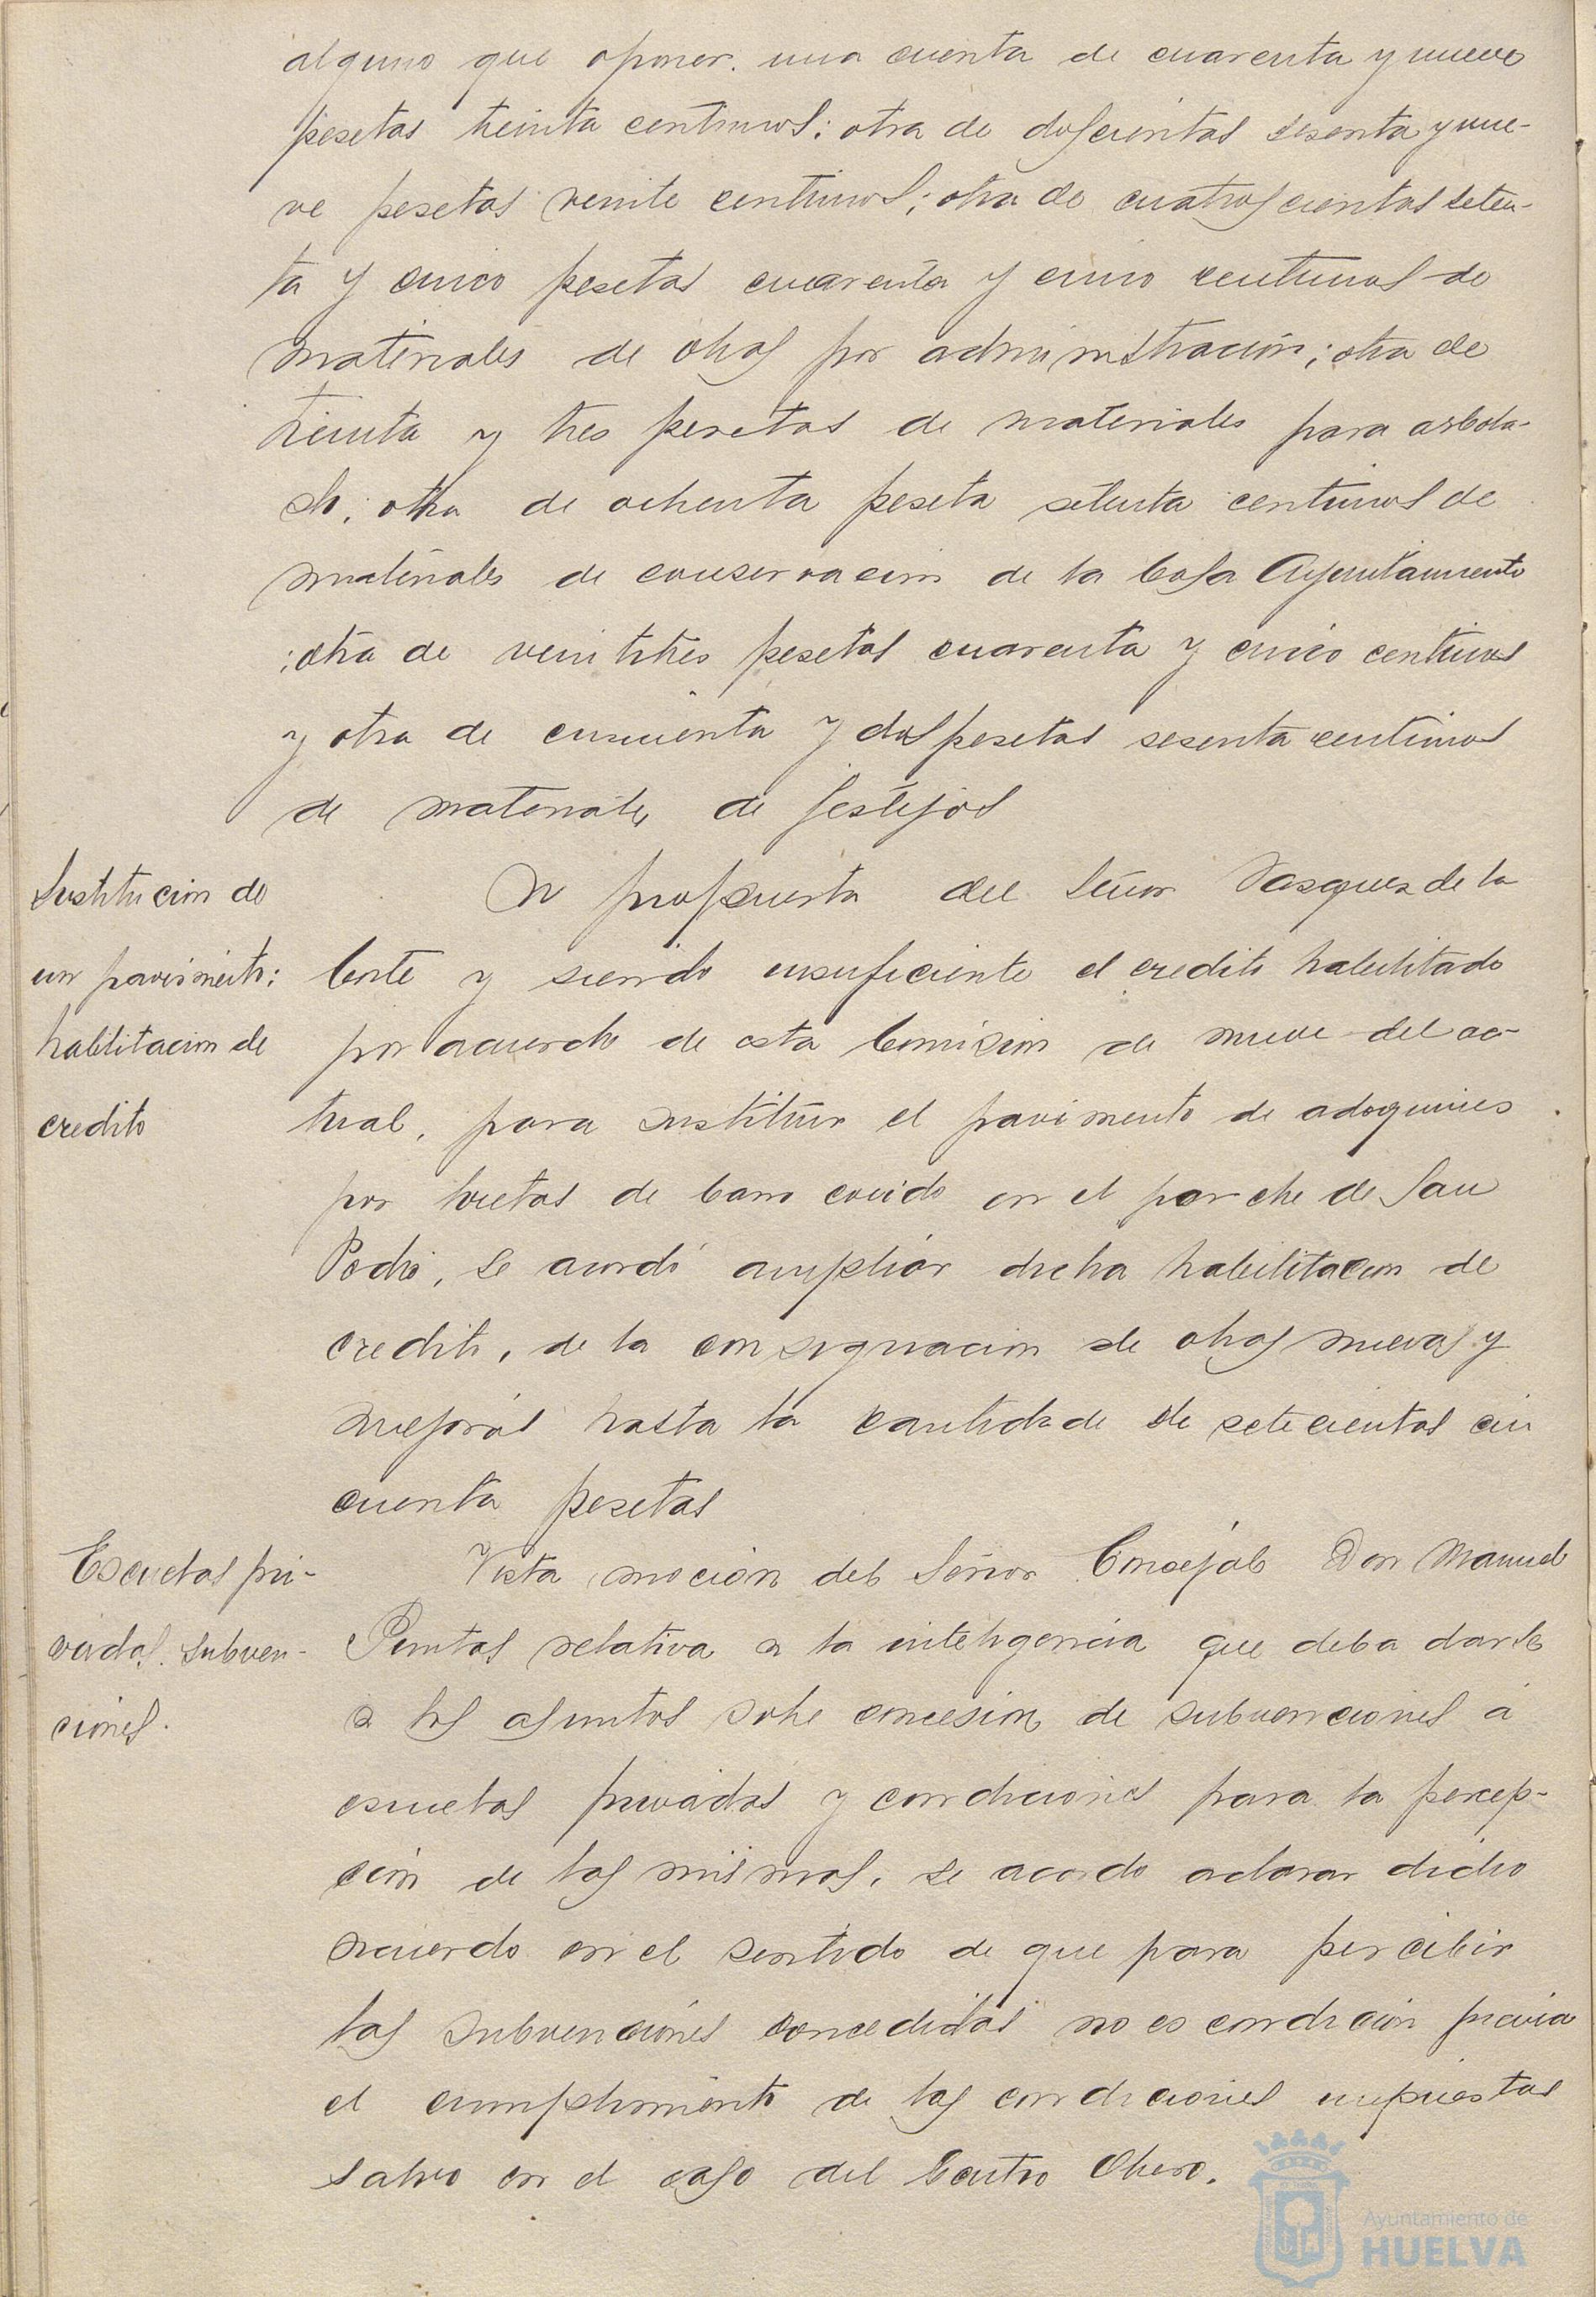 alguno que oponer. una cuenta de cuarenta y nueve
pesetas treinta centimos; otra de doscientas sesenta y nue-
ve pesetas veinte centimos; otra de cuatroscientas seten-
ta y cinco pesetas cuarenta y cinco centimos de
materiales de obras por administración; otra de
treinta y tres pesetas de materiales para arbola-
do; otra de ochenta peseta setenta centimos de
materiales de conservacion de la Casa Ayuntamiento
; otra de veintitres pesetas cuarenta y cinco centimos
y otra de cincuenta y dos pesetas sesenta centimos
de materiales de festejos
Sustitucion de
un pavimento:
habilitacion de
credito
A propuesta del Señor Vasquez de la
Corte y siendo insuficiente el credito habilitado
por acuerdo de esta Comision de nueve del ac-
tual, para sustituir el pavimento de adoquines
por losetas de barro cocido en el porche de San
Pedro, se acordó ampliar dicha habilitacion de
credito, de la consignacion de obras nuevas y
mejoras hasta la cantidad de setecientas cin
cuenta pesetas
Escuelas pri-
vadas. Subven-
ciones.
Vista mocion del Señor Concejal Don Manuel
Puntas relativa a la inteligencia que deba darse
a los asuntos sobre concesion de subvenciones á
escuelas privadas y condiciones para la percep-
ción de las mismas, se acordo aclarar dicho
acuerdo en el sentido de que para percibir
las subvenciones concedidas no es condicion previa
el cumplimiento de las condiciones impuestas
salvo en el caso del Centro Obrero.
Ayuntamiento de
HUELVA